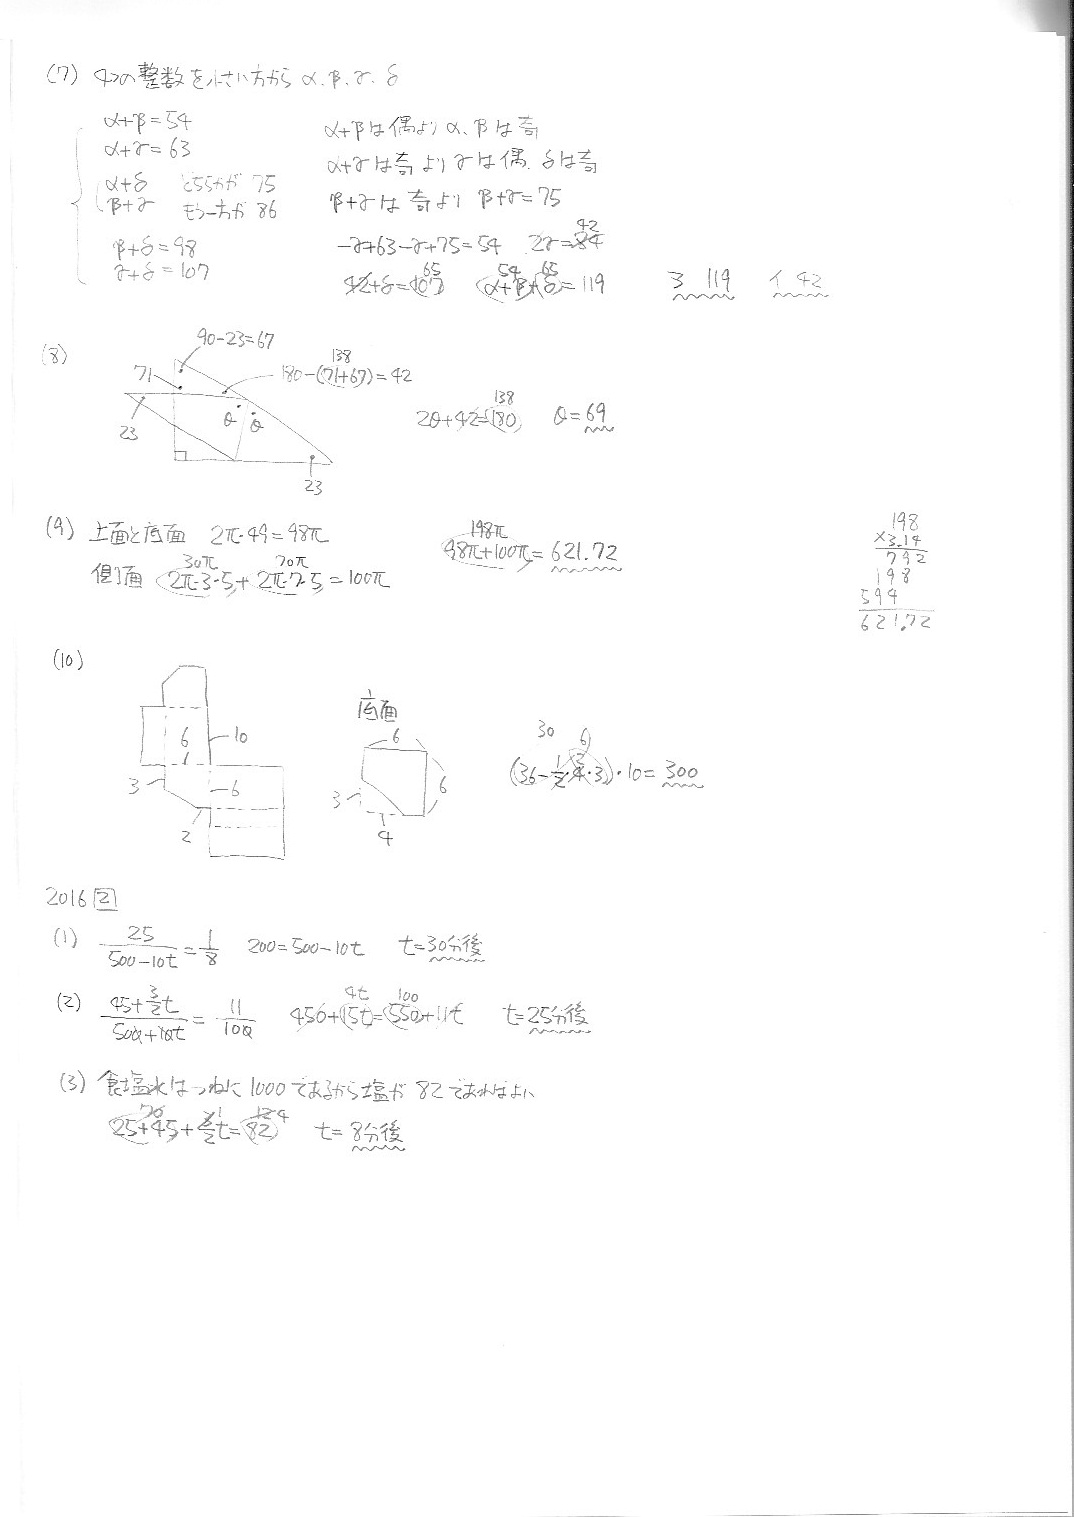 (7) 4つの整数を小さい方から α.β.γ.δ
α+β=54
α+γ=63
α+δ どちらかが 75
β+γ もう一方が 86
β+δ=98
γ+δ=107
α+βは偶より α、βは奇
α+γは奇よりγは偶.δは奇
β+γは奇より β+γ=75
-γ+63-γ+75=54 2γ=84 42
42+δ=107 65 α+β+δ=119 54 65
3 119 イ 42
(8)
90-23=67
71
180-(71+67)=42 138
θ θ
23
23
2θ+42=180 138 θ=69
(9) 上面と底面 2π・49=98π
側面 2π・3・5+2π・7・5=100π 30π 70π
98π+100π=621.72 198π
198
×3.14
792
198
594
621.72
(10)
6
10
3
6
2
底面
6
6
3
4
(36-1/2・4・3)・10=300 30 6
2016 2
(1) 25/(500-10t)=1/8 200=500-10t t=30分後
(2) (45+3/2t)/(500+10t)=11/100 450+15t=550+11t 4t 100 t=25分後
(3) 食塩水はつねに1000であるから塩が 82であればよい
25+45+3/2t=82 70 12 4 t=8分後